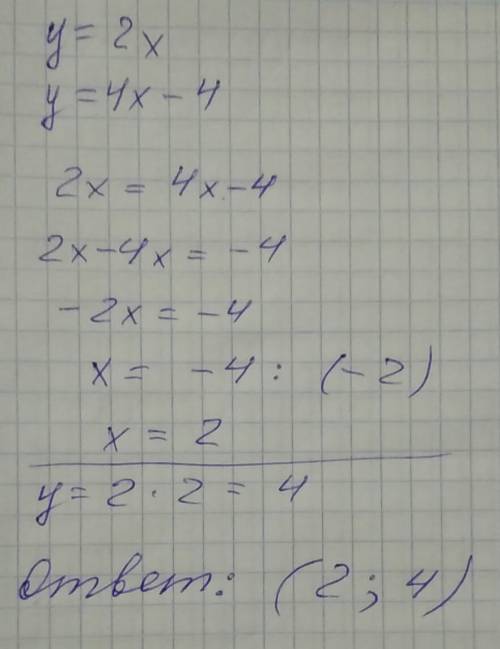 y = 2x
y = 4x - 4
2x = 4x - 4
2x - 4x = -4
-2x = -4
x = -4 : (-2)
x = 2
y = 2 · 2 = 4
Ответ: (2; 4)